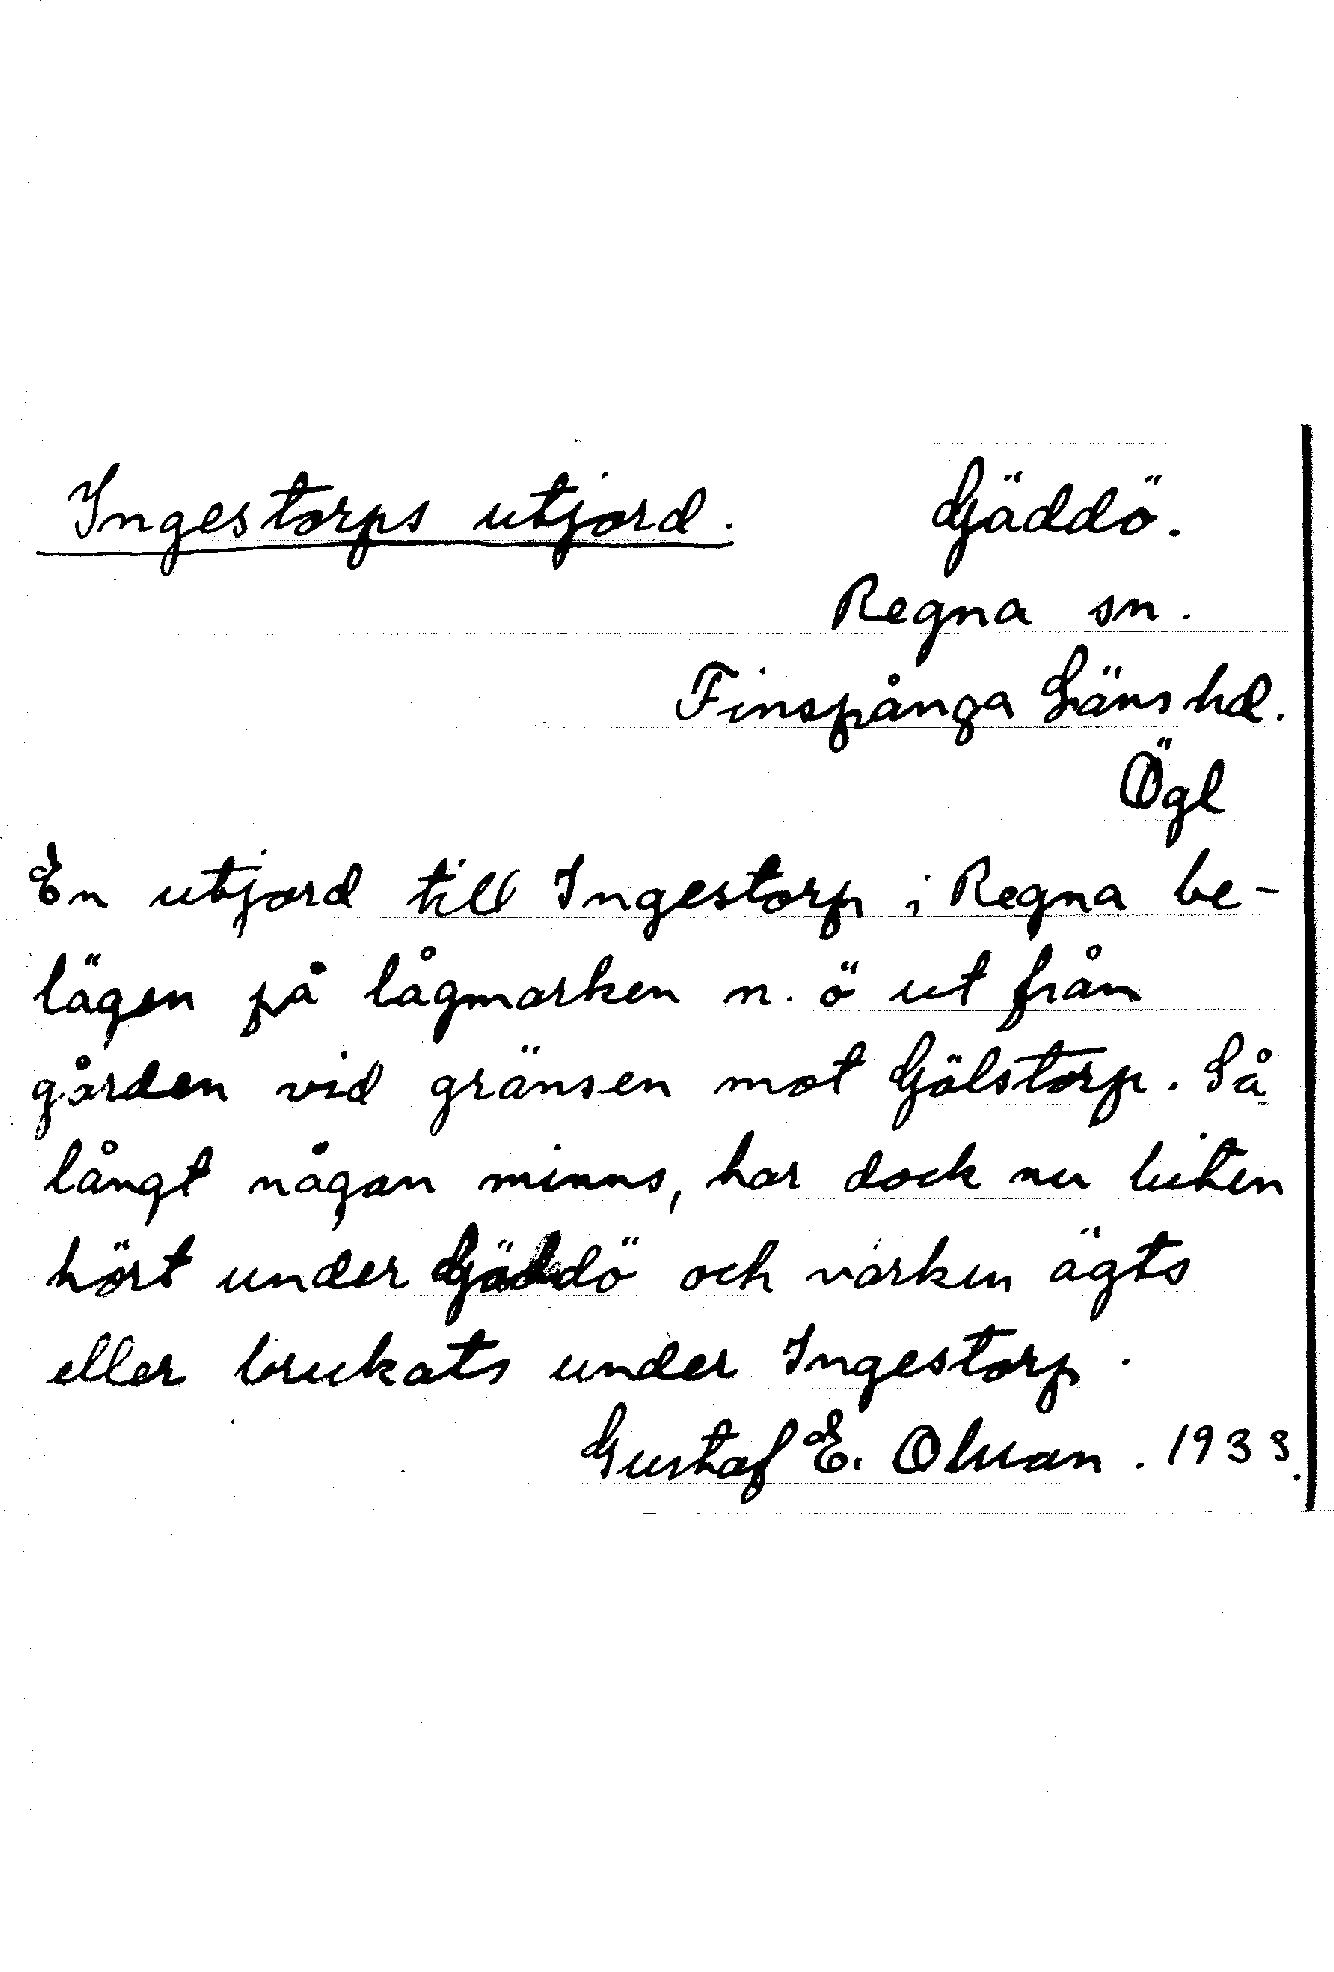 Ingestorps utjord. Gäddö.
Regna sn.
Finspånga Läns hd.
Ögl
En utjord till Ingestorp i Regna be-
lägen på lågmarken n. ö ut från
gården vid gränsen mot Gölstorp. Så
långt någon minns, har dock nu biten
hört under Gäddö och varken ägts
eller brukats under Ingestorp.
Gustaf E. 1933.